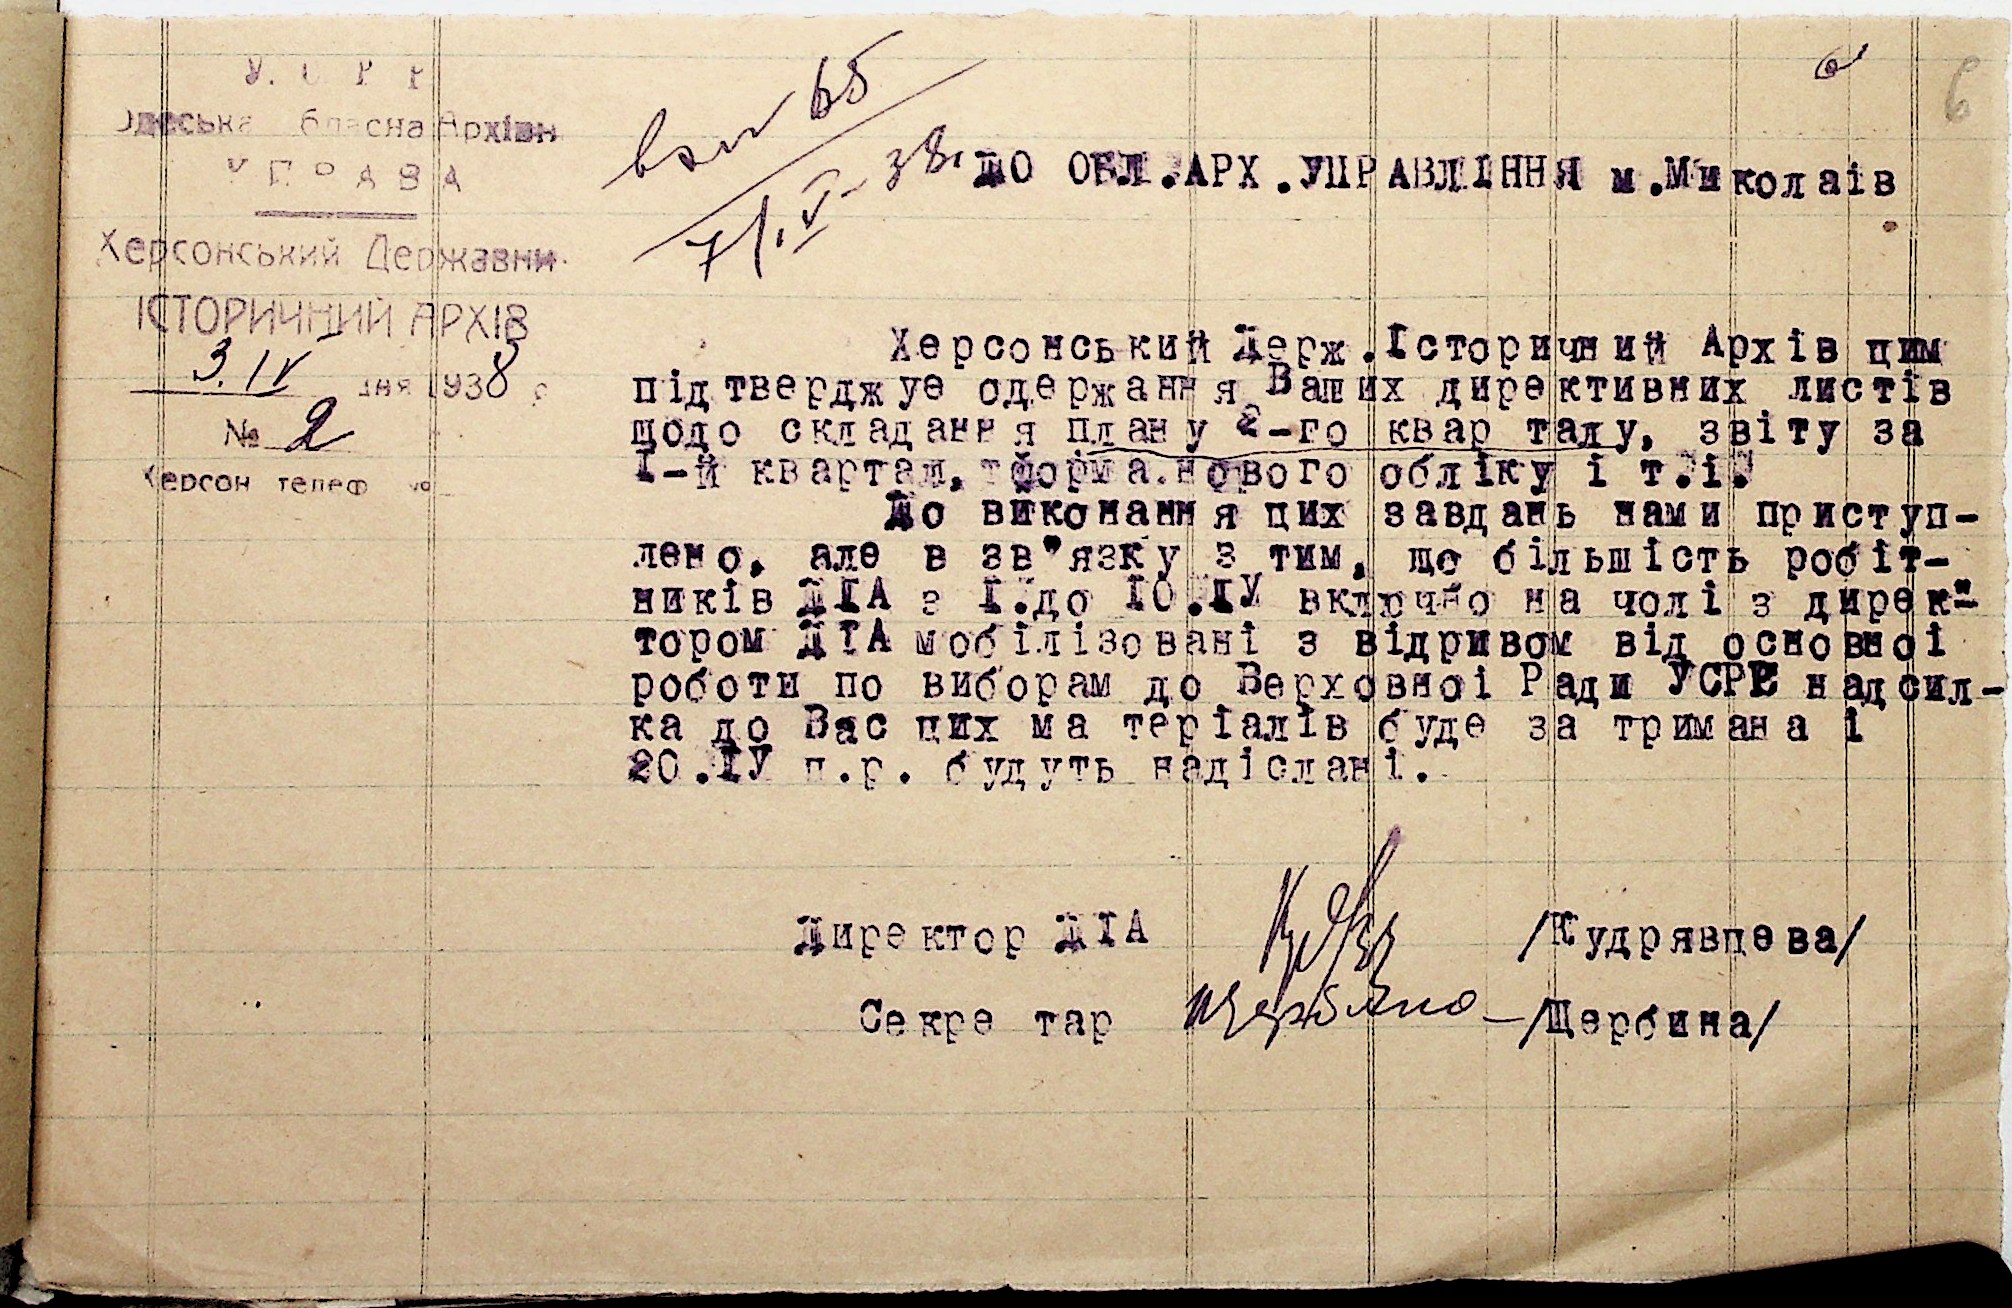 У.С.Р.Р
Одеська Обласна Архівн
УПРАВА
Херсонський Державни
ІСТОРИЧНИЙ АРХІВ
3.IV дня 1938 р
№ 2
Херсон телеф №
65
7/.V-38.
6
ДО ОБЛ.АРХ.УПРАВЛІННЯ м.Миколаів
Херсонський Держ.Історичний Архів цим
підтверджує одержання Ваших директивних листів
щодо складання плану 2-го квар талу, звіту за
І-й квартал, тформа.нового обліку і т.і.
До виконання цих завдань нами приступ-
лено, але в зв'язку з тим, що більшість робіт-
ників ДІА з І.до ІО.ІУ включно на чолі з дирек-
тором ДІА мобілізовані з відривом від основної
роботи по виборам до Верховної Ради УСРР надсил-
ка до Вас цих ма теріалів буде за тримана і
20.ІУ ц.р. будуть надіслані.
Директор ДІА /Кудрявцева/
Секре тар Щербина /Щербина/